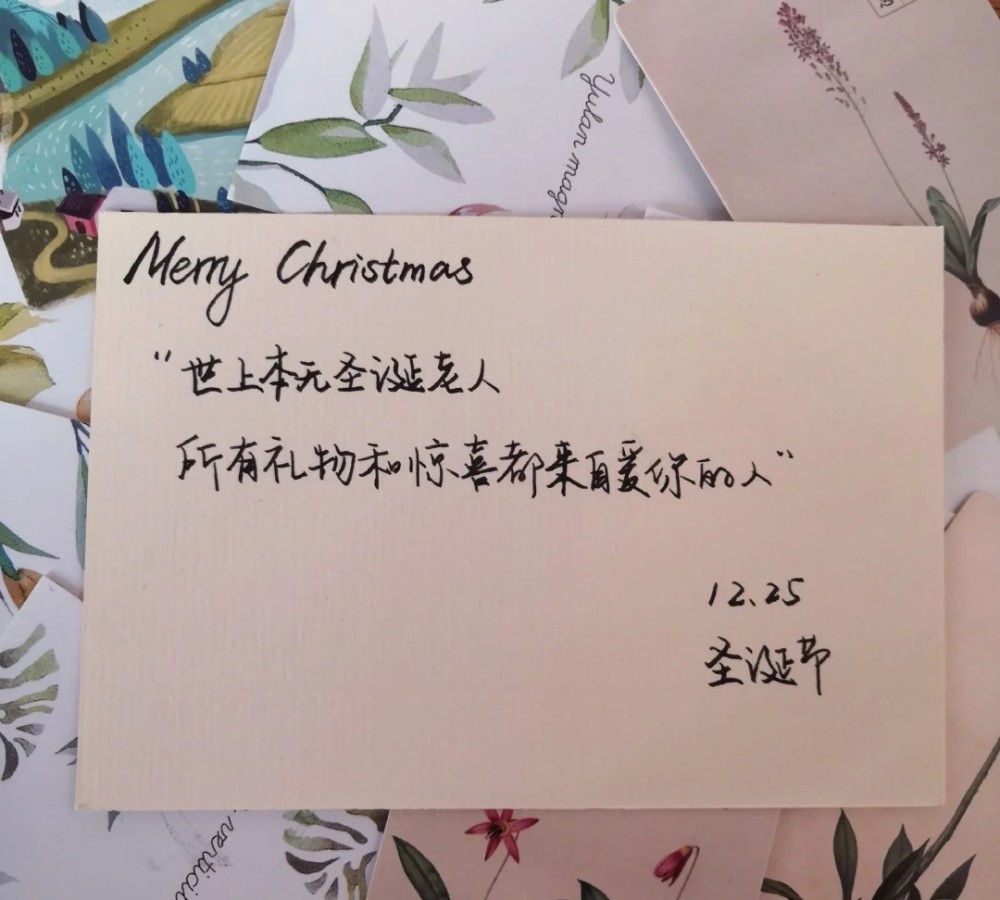 Yulan magn
Merry Christmas
"世上本无圣诞老人
所有礼物和惊喜都来自爱你的人"
12.25
圣诞节